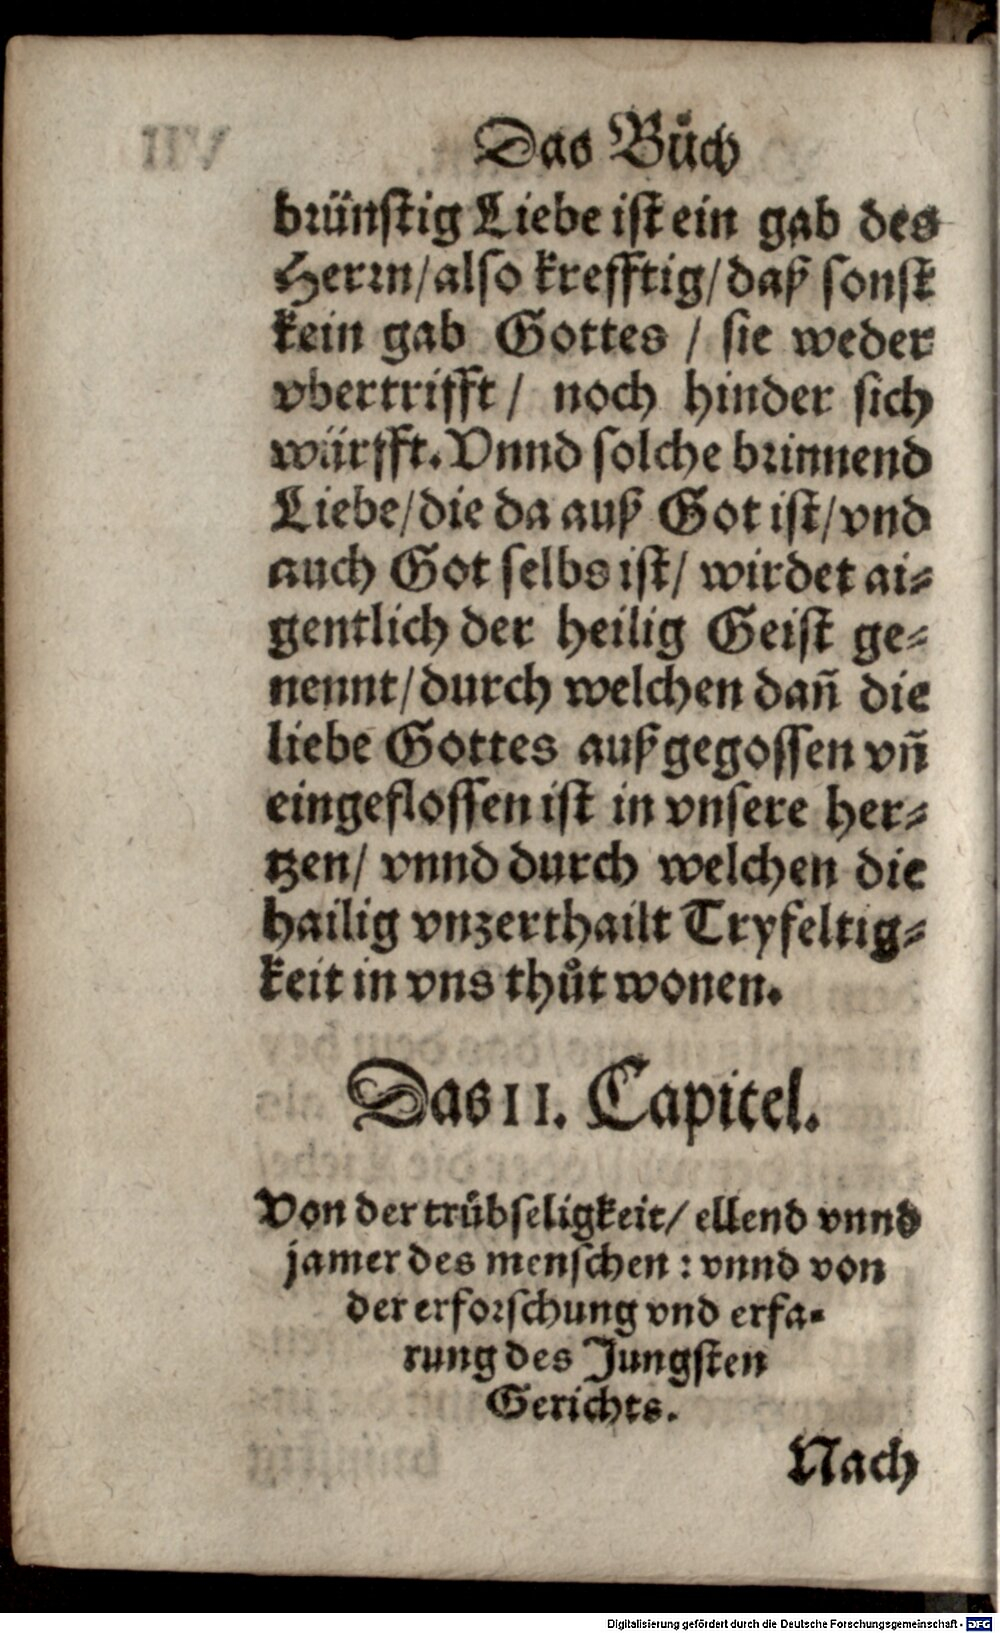 Das Bůch
brünstig Liebe ist ein gab des
Herrn/ also krefftig/ daß sonst
kein gab Gottes / sie weder
vbertrifft / noch hinder sich
würfft. Vnnd solche brinnend
Liebe/ die da auß Got ist/ vnd
auch Got selbs ist/ wirdet ai-
gentlich der heilig Geist ge-
nennt/ durch welchen dañ die
liebe Gottes außgegossen vñ
eingeflossen ist in vnsere her-
tzen/ vnnd durch welchen die
hailig vnzerthailt Tryfeltig-
keit in vns thůt wonen.
Das II. Capitel.
Von der trůbseligkeit/ ellend vnnd
jamer des menschen : vnnd von
der erforschung vnd erfa-
rung des Jungsten
Gerichts.
Nach
Digitalisierung gefördert durch die Deutsche Forschungsgemeinschaft - DFG